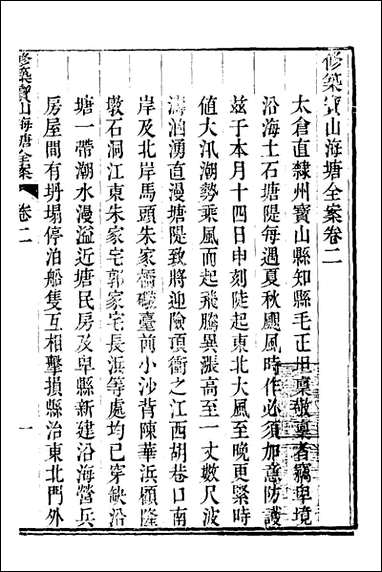 修築寶山海塘全案卷二
太倉直隸州寶山縣知縣毛正坦稟敬稟者竊卑境
沿海土石塘隄每遇夏秋颶風時作必須加意防護
茲于本月十四日申刻陡起東北大風至晚更緊時
値大汛潮勢乘風而起飛騰異漲高至一丈數尺波
濤洶湧直漫塘隄致將迎險頂衝之江西胡巷口南
岸及北岸馬頭朱家橋礮臺前小沙背陳華浜顧隆
墩石洞江東朱家宅郭家宅長浜等處均已穿缺沿
塘一帶潮水漫溢近塘民房及卑縣新建沿海營兵
房屋間有坍塌停泊船隻互相擊損縣治東北門外
修築寶山海塘全案
卷二
一